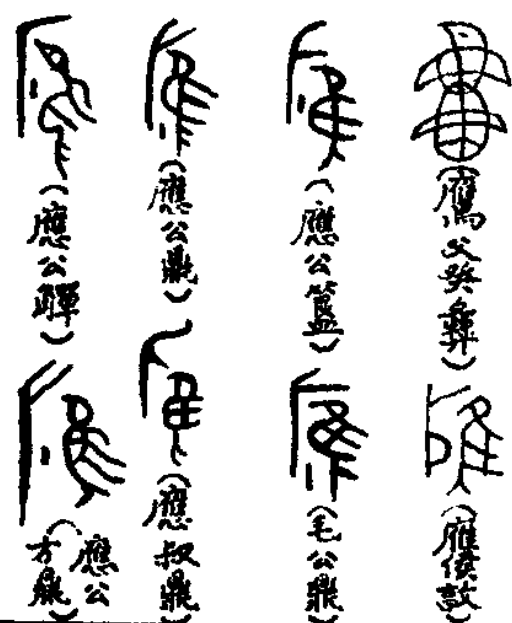 (鷹父癸彝)
(應侯敦)
(應公簋)
(毛公鼎)
(應公鼎)
(應叔鼎)
(應公觶)
(應公
方鼎)